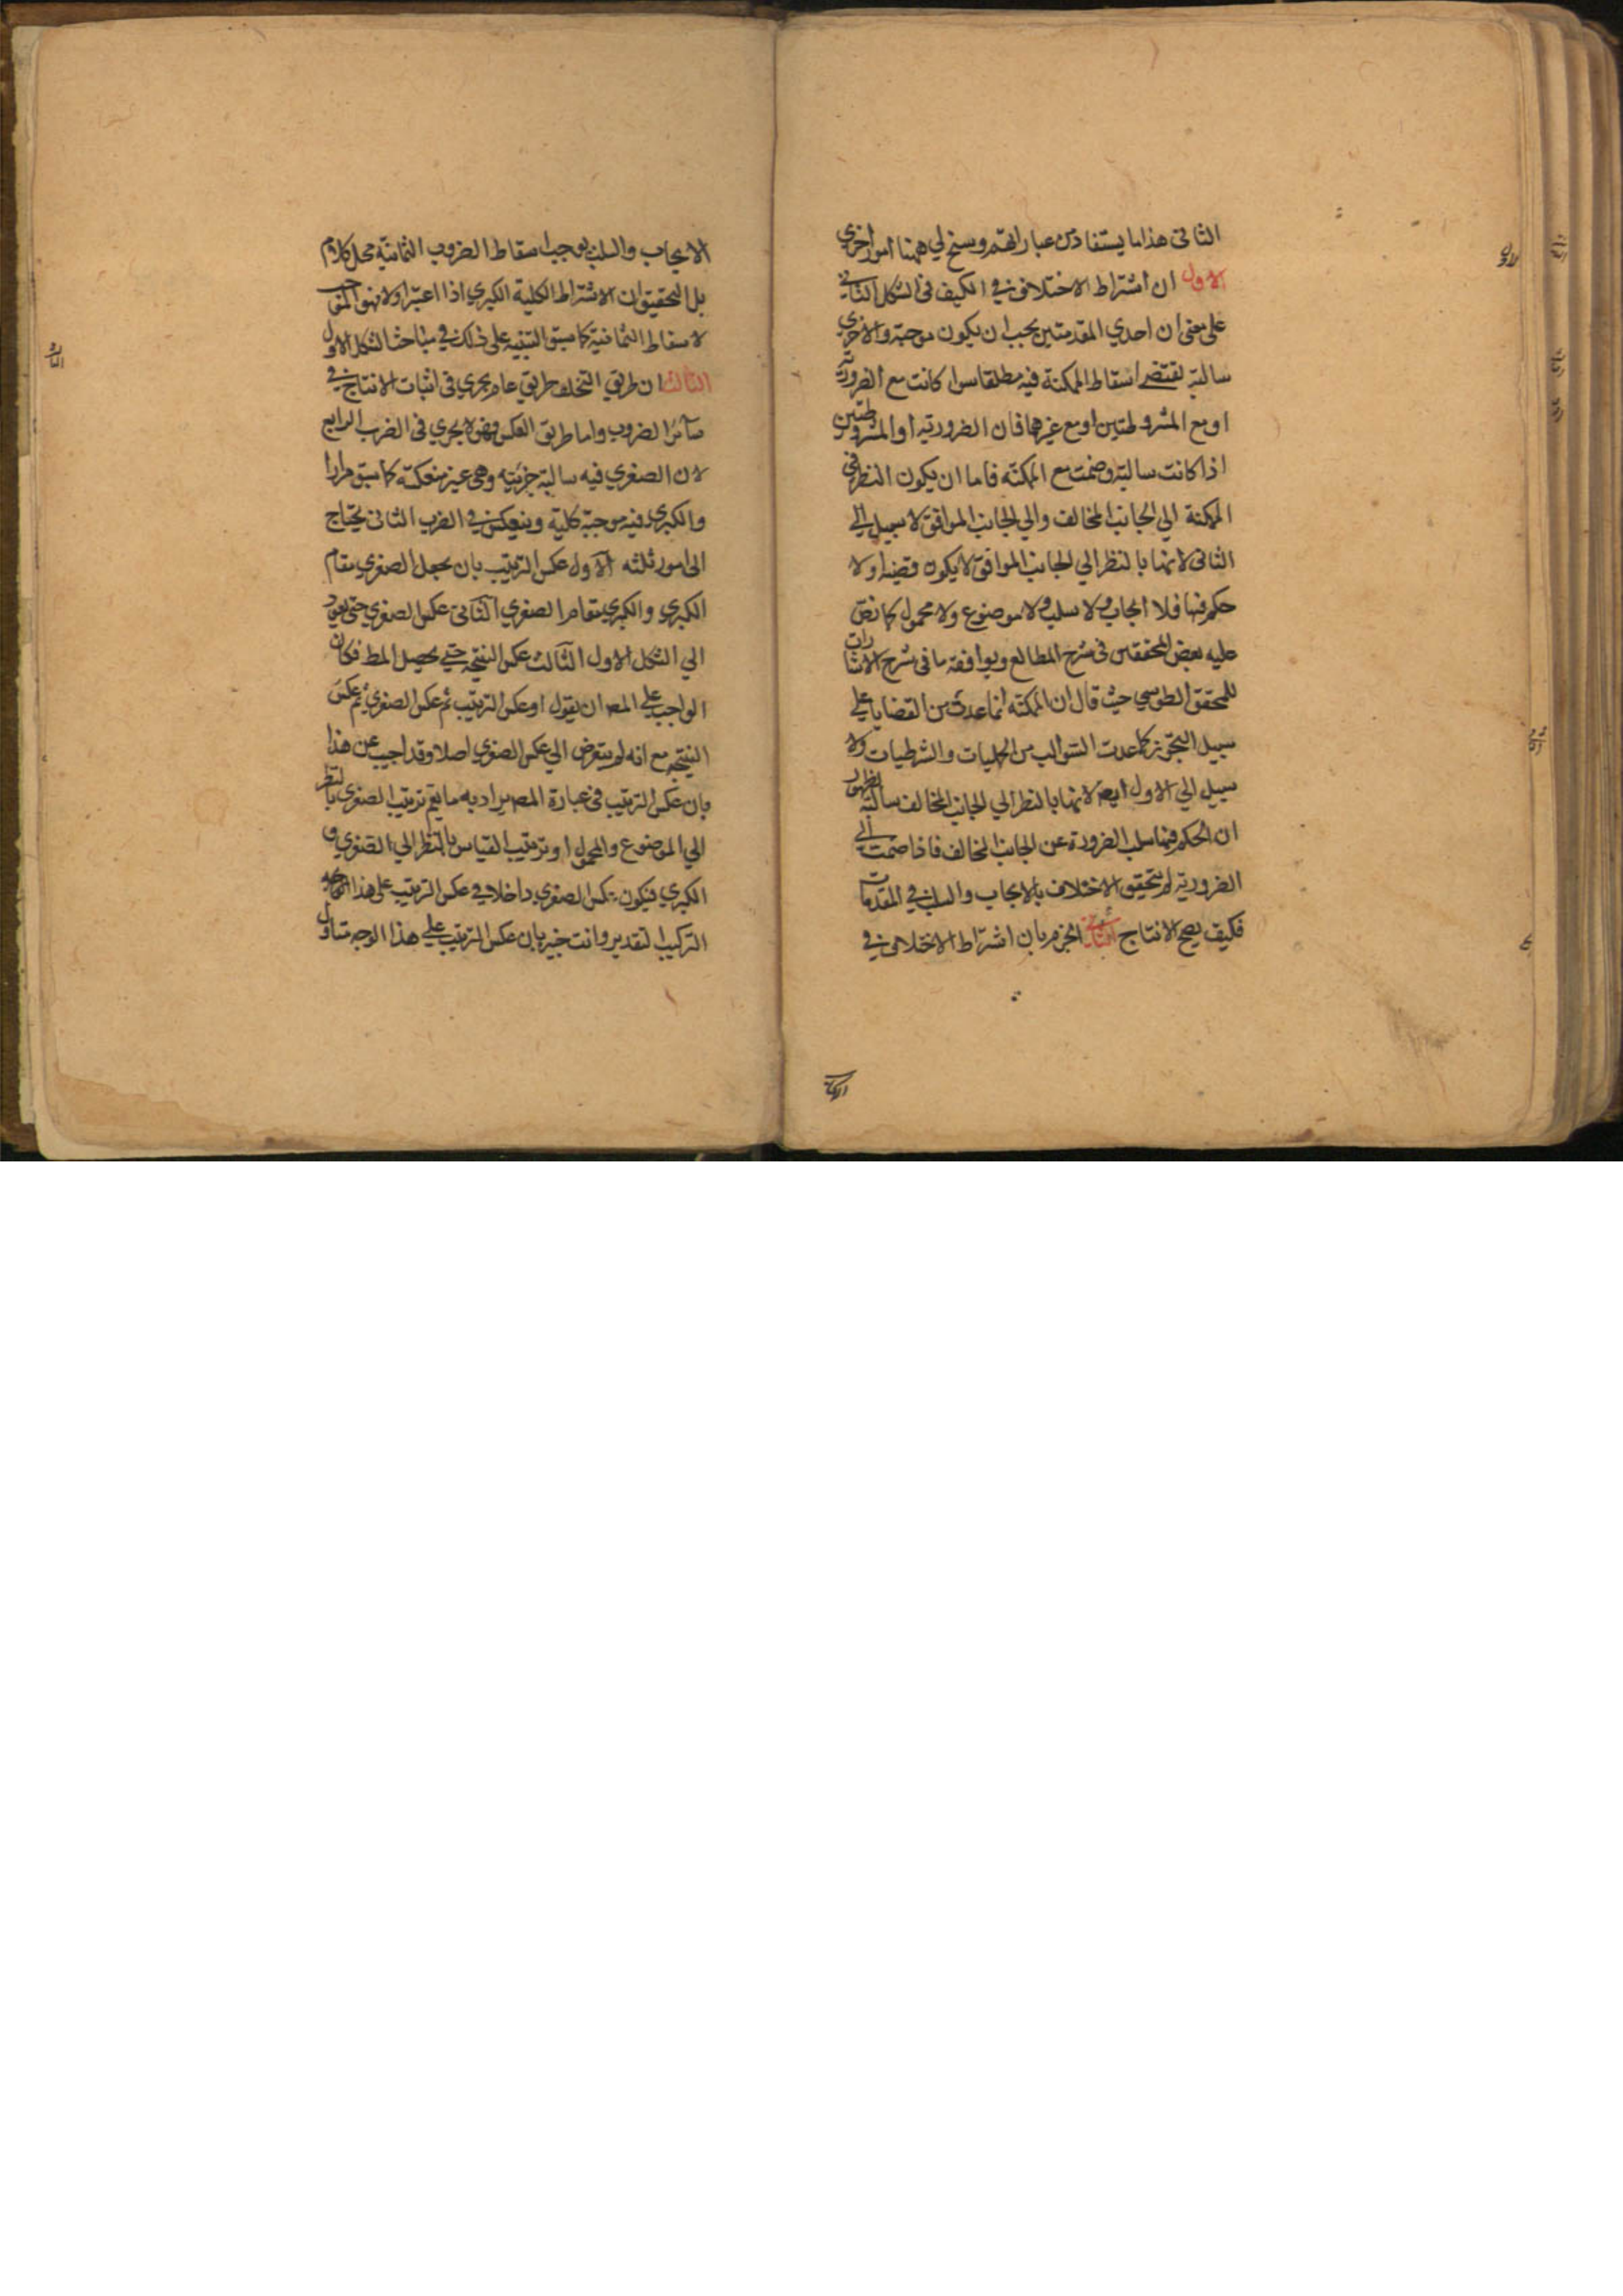 الثانى هذا ما يستفاد من عباراتهم وسنح لي ههنا امور اخري
الاول ان اشتراط الاختلاف في الكيف فى الشكل الثاني
على معنى ان احدي المقدمتين يجب ان يكون موجبة والاخري
سالبة يقتضے اسقاط الممكنة فيه مطلقا سوا كانت مع الضرورية
او مع المشروطتين او مع غيرهما فان الضرورية او المشروطتين
اذا كانت سالبة وضمت مع الممكنة فاما ان يكون النظر فى
الممكنة الي الجانب المخالف والي الجانب الموافق لا سبيل الى
الثانى لانها بالنظر الي الجانب الموافق لا يكون قضية ولا
حكم فيها فلا ايجاب ولا سلب ولا موضوع ولا محمول كما نص
عليه بعض المحققين فى شرح المطالع ويوافقه ما فى شرح الاشارات
للمحقق الطوسي حيث قال ان الممكنة انما عدت من القضايا على
سبيل التجوز كما عدت السوالب من الحمليات والشرطيات ولا
سبيل الي الاول ايضا لانها بالنظر الي الجانب المخالف سالبة لظهور
ان الحكم فيها سلب الضرورة عن الجانب المخالف فاذا ضمت الى
الضرورية لم يتحقق الاختلاف بالايجاب والسلب في المقدمات
فكيف يصح الانتاج الثاني الجزم بان اشتراط الاختلاف في
الايجاب والسلب يوجب اسقاط الضروب الثمانية محل كلام
بل التحقيق ان الاشتراط الكلية الكبري اذا اعتبر اولا فهو الموجب
لاسقاط الثمانية كما سبق التنبيه على ذلك في مباحث الشكل الاول
الثالث ان طريق الخلف طريق عام يجري فى اثبات الانتاج في
سائر الضروب واما طريق العكس فهو لا يجري فى الضرب الرابع
لان الصغري فيه سالبة جزئية وهى غير منعكسة كما سبق مرارا
والكبرى فيه موجبة كلية وينعكس في الضرب الثانى يحتاج
الى امور ثلثه الاول عكس الترتيب بان يجعل الصغري مقام
الكبري والكبري مقام الصغري الثانى عكس الصغري حتى يعود
الي الشكل الاول الثالث عكس النتيجة حتى يحصل المط فكان
الواجب على المص ان يقول او عكس الترتيب ثم عكس الصغري ثم عكس
النتيجة مع انه لم يتعرض الي عكس الصغري اصلا وقد اجيب عن هذا
بان عكس الترتيب فى عبارة المص يراد به ما يعم ترتيب الصغرى بالنظر
الي الموضوع والمحمول او ترتيب القياس بالنظر الي الصغري و
الكبري فيكون عكس الصغري داخلا في عكس الترتيب على هذا
التركيب التقدير وانت خبير بان عكس الترتيب على هذا الوجه متناول